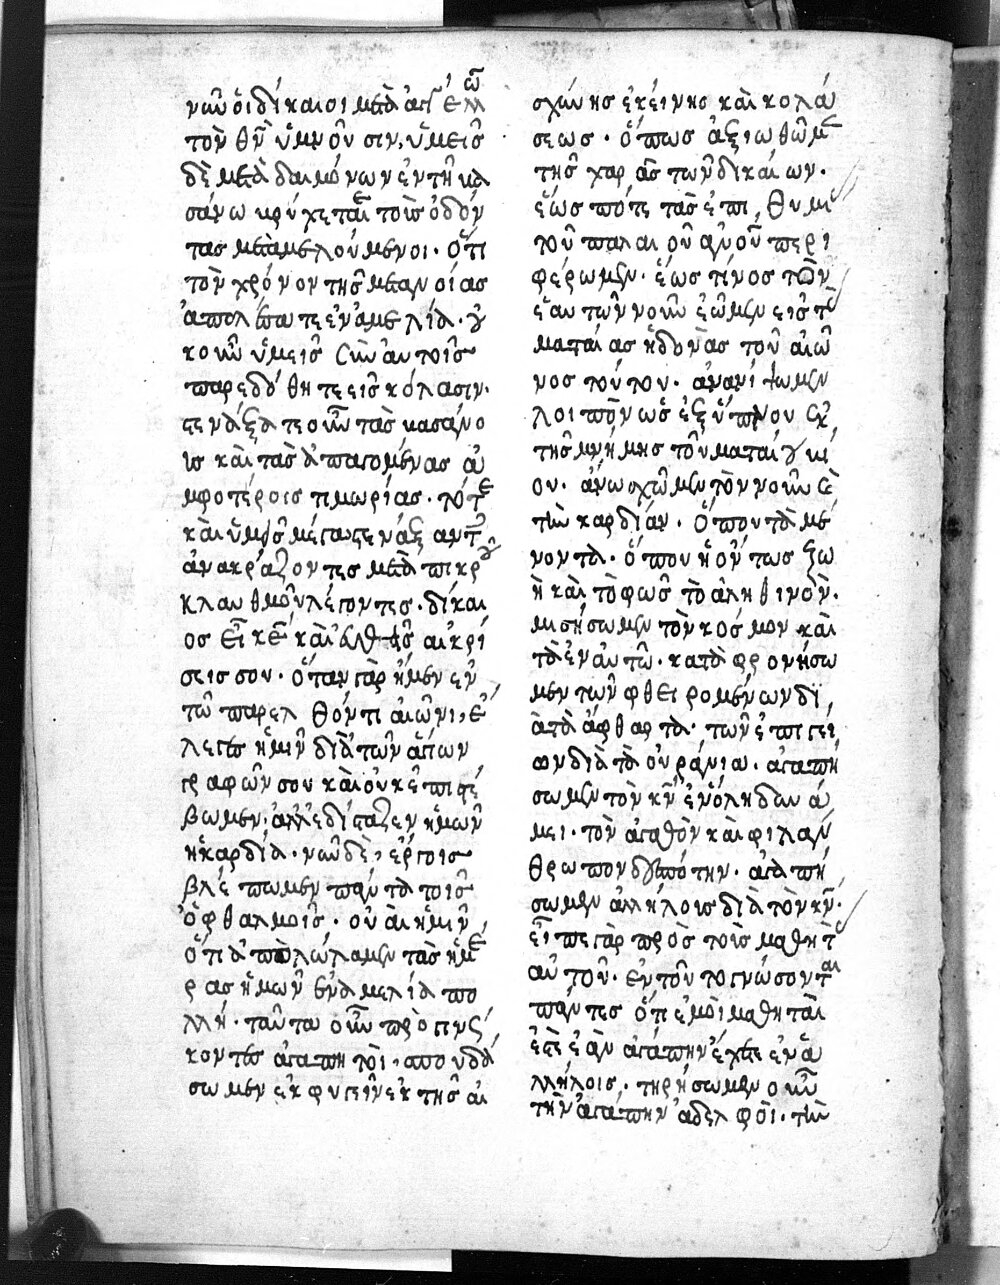 νῶν οἱ δίκαιοι μετὰ ἀγγέλων
τὸν θν̄ ὑμνοῦσιν, ὑμεῖς
δὲ μετὰ δαιμόνων ἐν τῇ κα
σάνω βρύχεται τοῖς ὀδόν
τας μεταμελούμενοι. ὅτι
τὸν χρόνον τῆς μετανοίας
ἀπολέσατε ἐν ἀμελία.
κοινῶ ὑμεῖς σὺν αὐτοῖς
παρεδόθητε εἰς κόλασιν.
στενάξατε οὖν τὰς βασάνο
ις καὶ τὰς ἀπαγομένας ἀ
μφοτέροις τιμωρίας. τότε
καὶ ὑμεῖς μέγα στενάξαντες
ἀνακράζοντες μετὰ πικροῦ
κλαυθμοῦ λέγοντες. δίκαι
ος εἶ κε̄ καὶ ἀληθεῖς αἱ κρί
σεις σου. ὅταν γὰρ ἦμεν ἐν
τῶ παρελθόντι αἰῶνι, ἔ
λεγες ἡμῖν διὰ τῶν ἁγίων
γραφῶν σου καὶ οὐκ ἐπιστεύ
βωμεν. ἀλλ' ἐδίσταζεν ἡμῶν
ἡ καρδία. νῦν δὲ, ἔργοις
βλέπωμεν πάντα τοῖς
ὀφθαλμοῖς. οὐαὶ ἡμῖν,
ὅτι ἀπολώλαμεν τὰς ἡμέ
ρας ἡμῶν ἐν ἀμελία πο
λλῆ. ταῦτα οὖν προγινώς
κοντες ἀγαπητοὶ, σπουδά
σωμεν ἐκφυγεῖν ἐκ τῆς αἰ
σχύνης ἐκείνης καὶ κολά
σεως. ὅπως ἀξιωθῶμεν
τῆς χαρᾶς τῶν δικαίων.
ἕως πότε τὰς ἐπιθυμίας
τοῦ παλαιοῦ ἀνοῦ περι
φέρωμεν. ἕως τίνος τὸν
ἑαυτῶν νοῦν ἐῶμεν εἰς τὰς
ματαίας ἡδονὰς τοῦ αἰῶ
νος τούτου. ἀνανήψωμεν
λοιπὸν ὡς ἐξ ὕπνου ἐκ
τῆς μνήμης τοῦ ματαίου βί
ου. ἄνω σχῶμεν τὸν νοῦν καὶ
τὴν καρδίαν. ὅπου τὰ μέ
νοντα. ὅπου ἡ ὄντως ζω
ὴ καὶ τὸ φῶς τὸ ἀληθινόν.
μισήσωμεν τὸν κόσμον καὶ
τὰ ἐν αὐτῶ. καταφρονήσω
μεν τῶν φθειρομένων δι,
ὰ τὰ ἄφθαρτα. τῶν ἐπιγεί
ων διὰ τὰ οὐράνια. ἀγαπή
σωμεν τὸν κν̄ ἐν ὅλη δυνά
μει. τὸν ἀγαθὸν καὶ φιλάν
θρωπον δεσπότην. ἀγαπή
σωμεν ἀλλήλοις διὰ τὸν κν̄.
εἶπε γὰρ πρὸς τοῖς μαθητὰς
αὐτοῦ. ἐν τούτο γνώσονται
πάντες ὅτι ἐμοὶ μαθηταὶ
ἐστὲ ἐὰν ἀγάπην ἔχετε ἐν ἀ
λλήλοις. τηρήσωμεν οὖν
τὴν ἀγάπην ἀδελφοὶ. τὴν